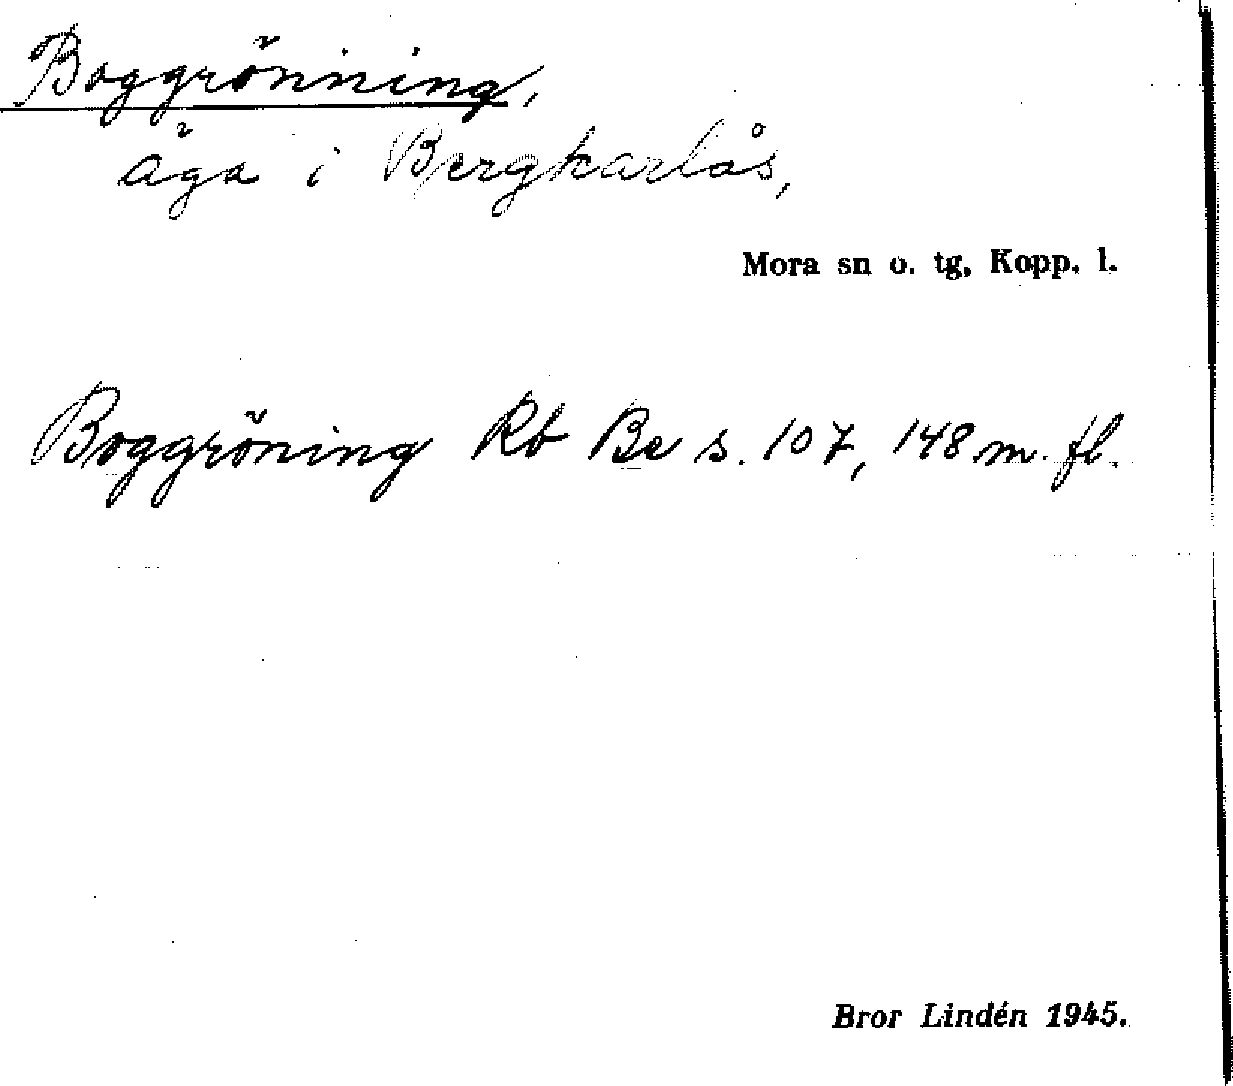 Boggrönning,
äga i Bergkarlås,
Mora sn o. tg, Kopp. l.
Boggröning Rb Be s. 107, 148 m. fl.
Bror Lindén 1945.